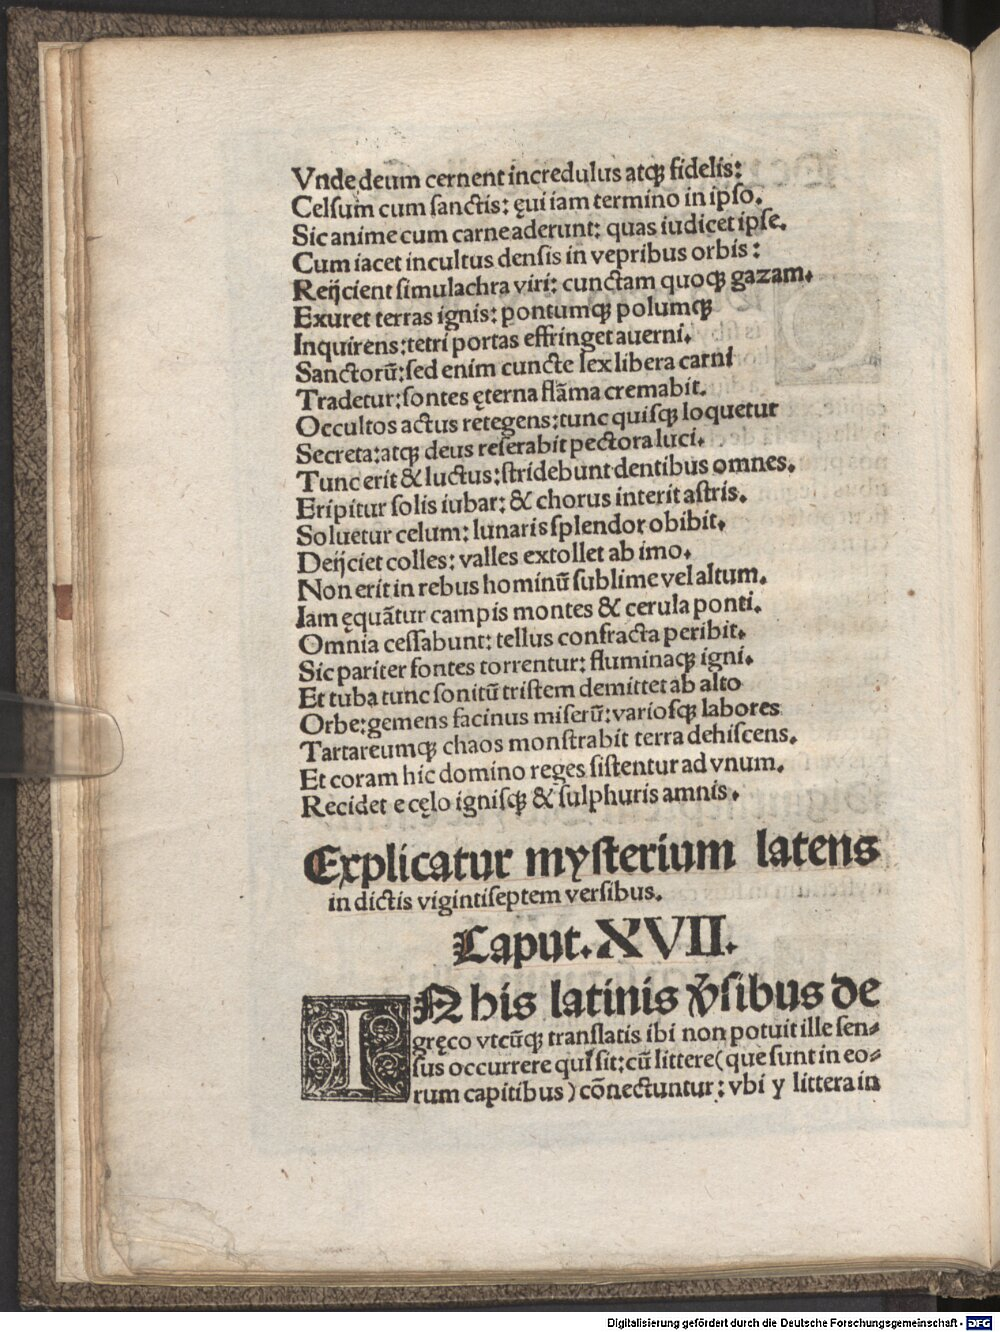 Vnde deum cernent incredulus atqꝫ fidelis:
Celsum cum sanctis: ęui iam termino in ipso.
Sic anime cum carne aderunt: quas iudicet ipse.
Cum iacet incultus densis in vepribus orbis:
Reijcient simulachra viri: cunctam quoqꝫ gazam.
Exuret terras ignis: pontumqꝫ polumqꝫ
Inquirens: tetri portas effringet auerni.
Sanctorū: sed enim cuncte lex libera carni
Tradetur: sontes ęterna flāma cremabit.
Occultos actus retegens: tunc quisqꝫ loquetur
Secreta: atqꝫ deus reserabit pectora luci.
Tunc erit & luctus: stridebunt dentibus omnes.
Eripitur solis iubar: & chorus interit astris.
Soluetur celum: lunaris splendor obibit.
Deijciet colles: valles extollet ab imo.
Non erit in rebus hominū sublime vel altum.
Iam ęquātur campis montes & cerula ponti.
Omnia cessabunt: tellus confracta peribit.
Sic pariter fontes torrentur: fluminaqꝫ igni.
Et tuba tunc sonitū tristem demittet ab alto
Orbe: gemens facinus miserū: variosqꝫ labores
Tartareumqꝫ chaos monstrabit terra dehiscens.
Et coram hic domino reges sistentur ad vnum.
Recidet e cęlo ignisqꝫ & sulphuris amnis.
Explicatur mysterium latens
in dictis vigintiseptem versibus.
Caput. XVII.
IN his latinis v̄sibus de
gręco vtcūqꝫ translatis ibi non potuit ille sen-
sus occurrere qui sit: cū littere (que sunt in eo-
rum capitibus) cōnectuntur: vbi y littera in
Digitalisierung gefördert durch die Deutsche Forschungsgemeinschaft - DFG